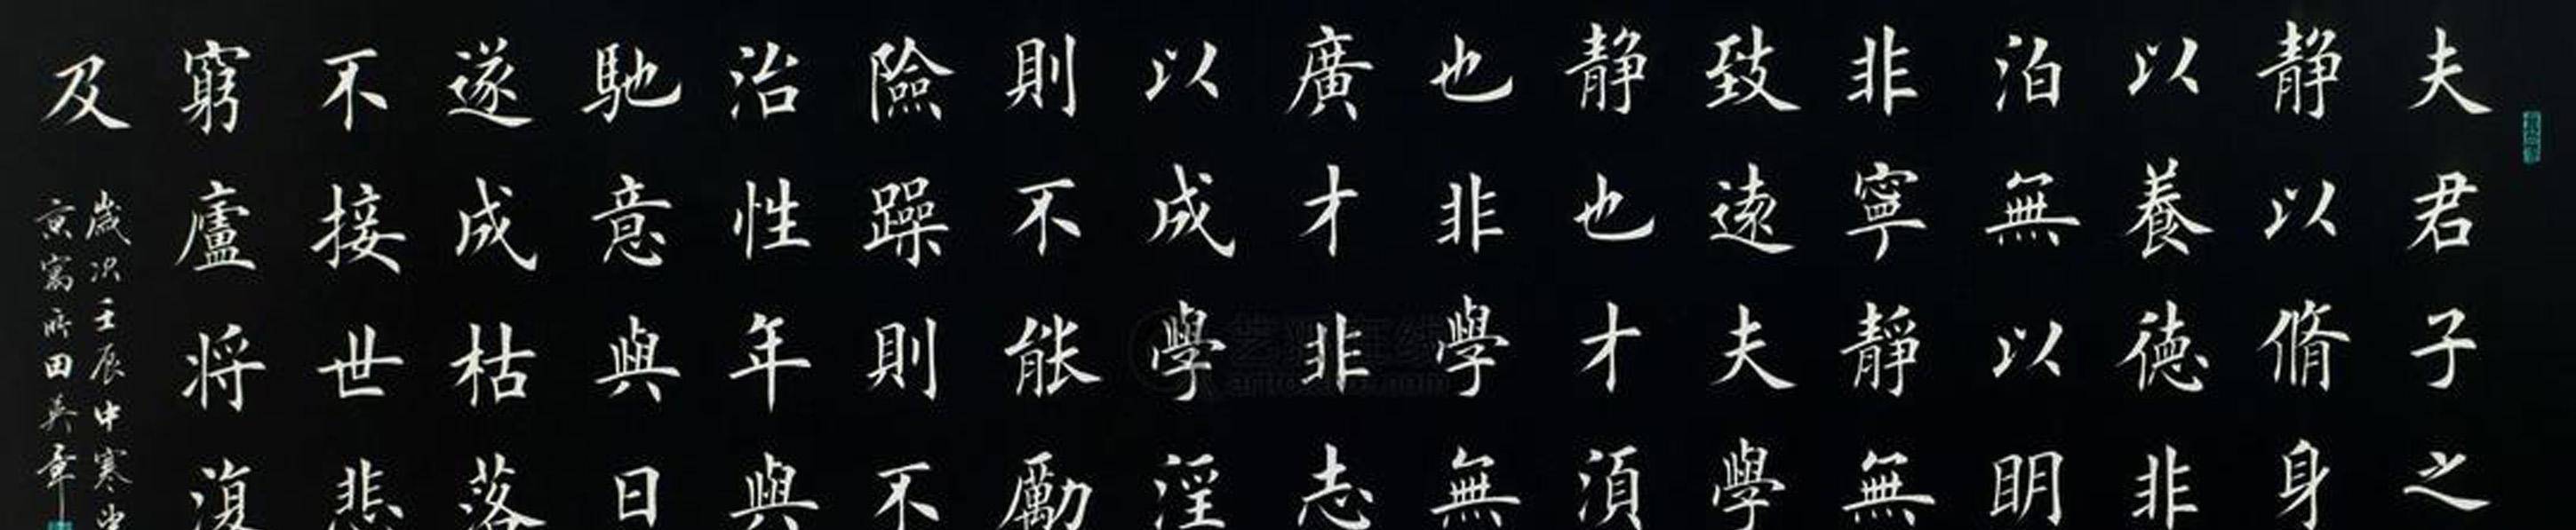 夫君子之
静以脩身
以養徳非
泊無以明
非寧靜無
致遠夫學
静也才須
也非學無
廣才非志
以成學淫
則不能勵
險躁則不
治性年與
馳意與日
遂成枯落
不接世悲
窮廬将復
及
歲次壬辰中寒
京寓所田英章